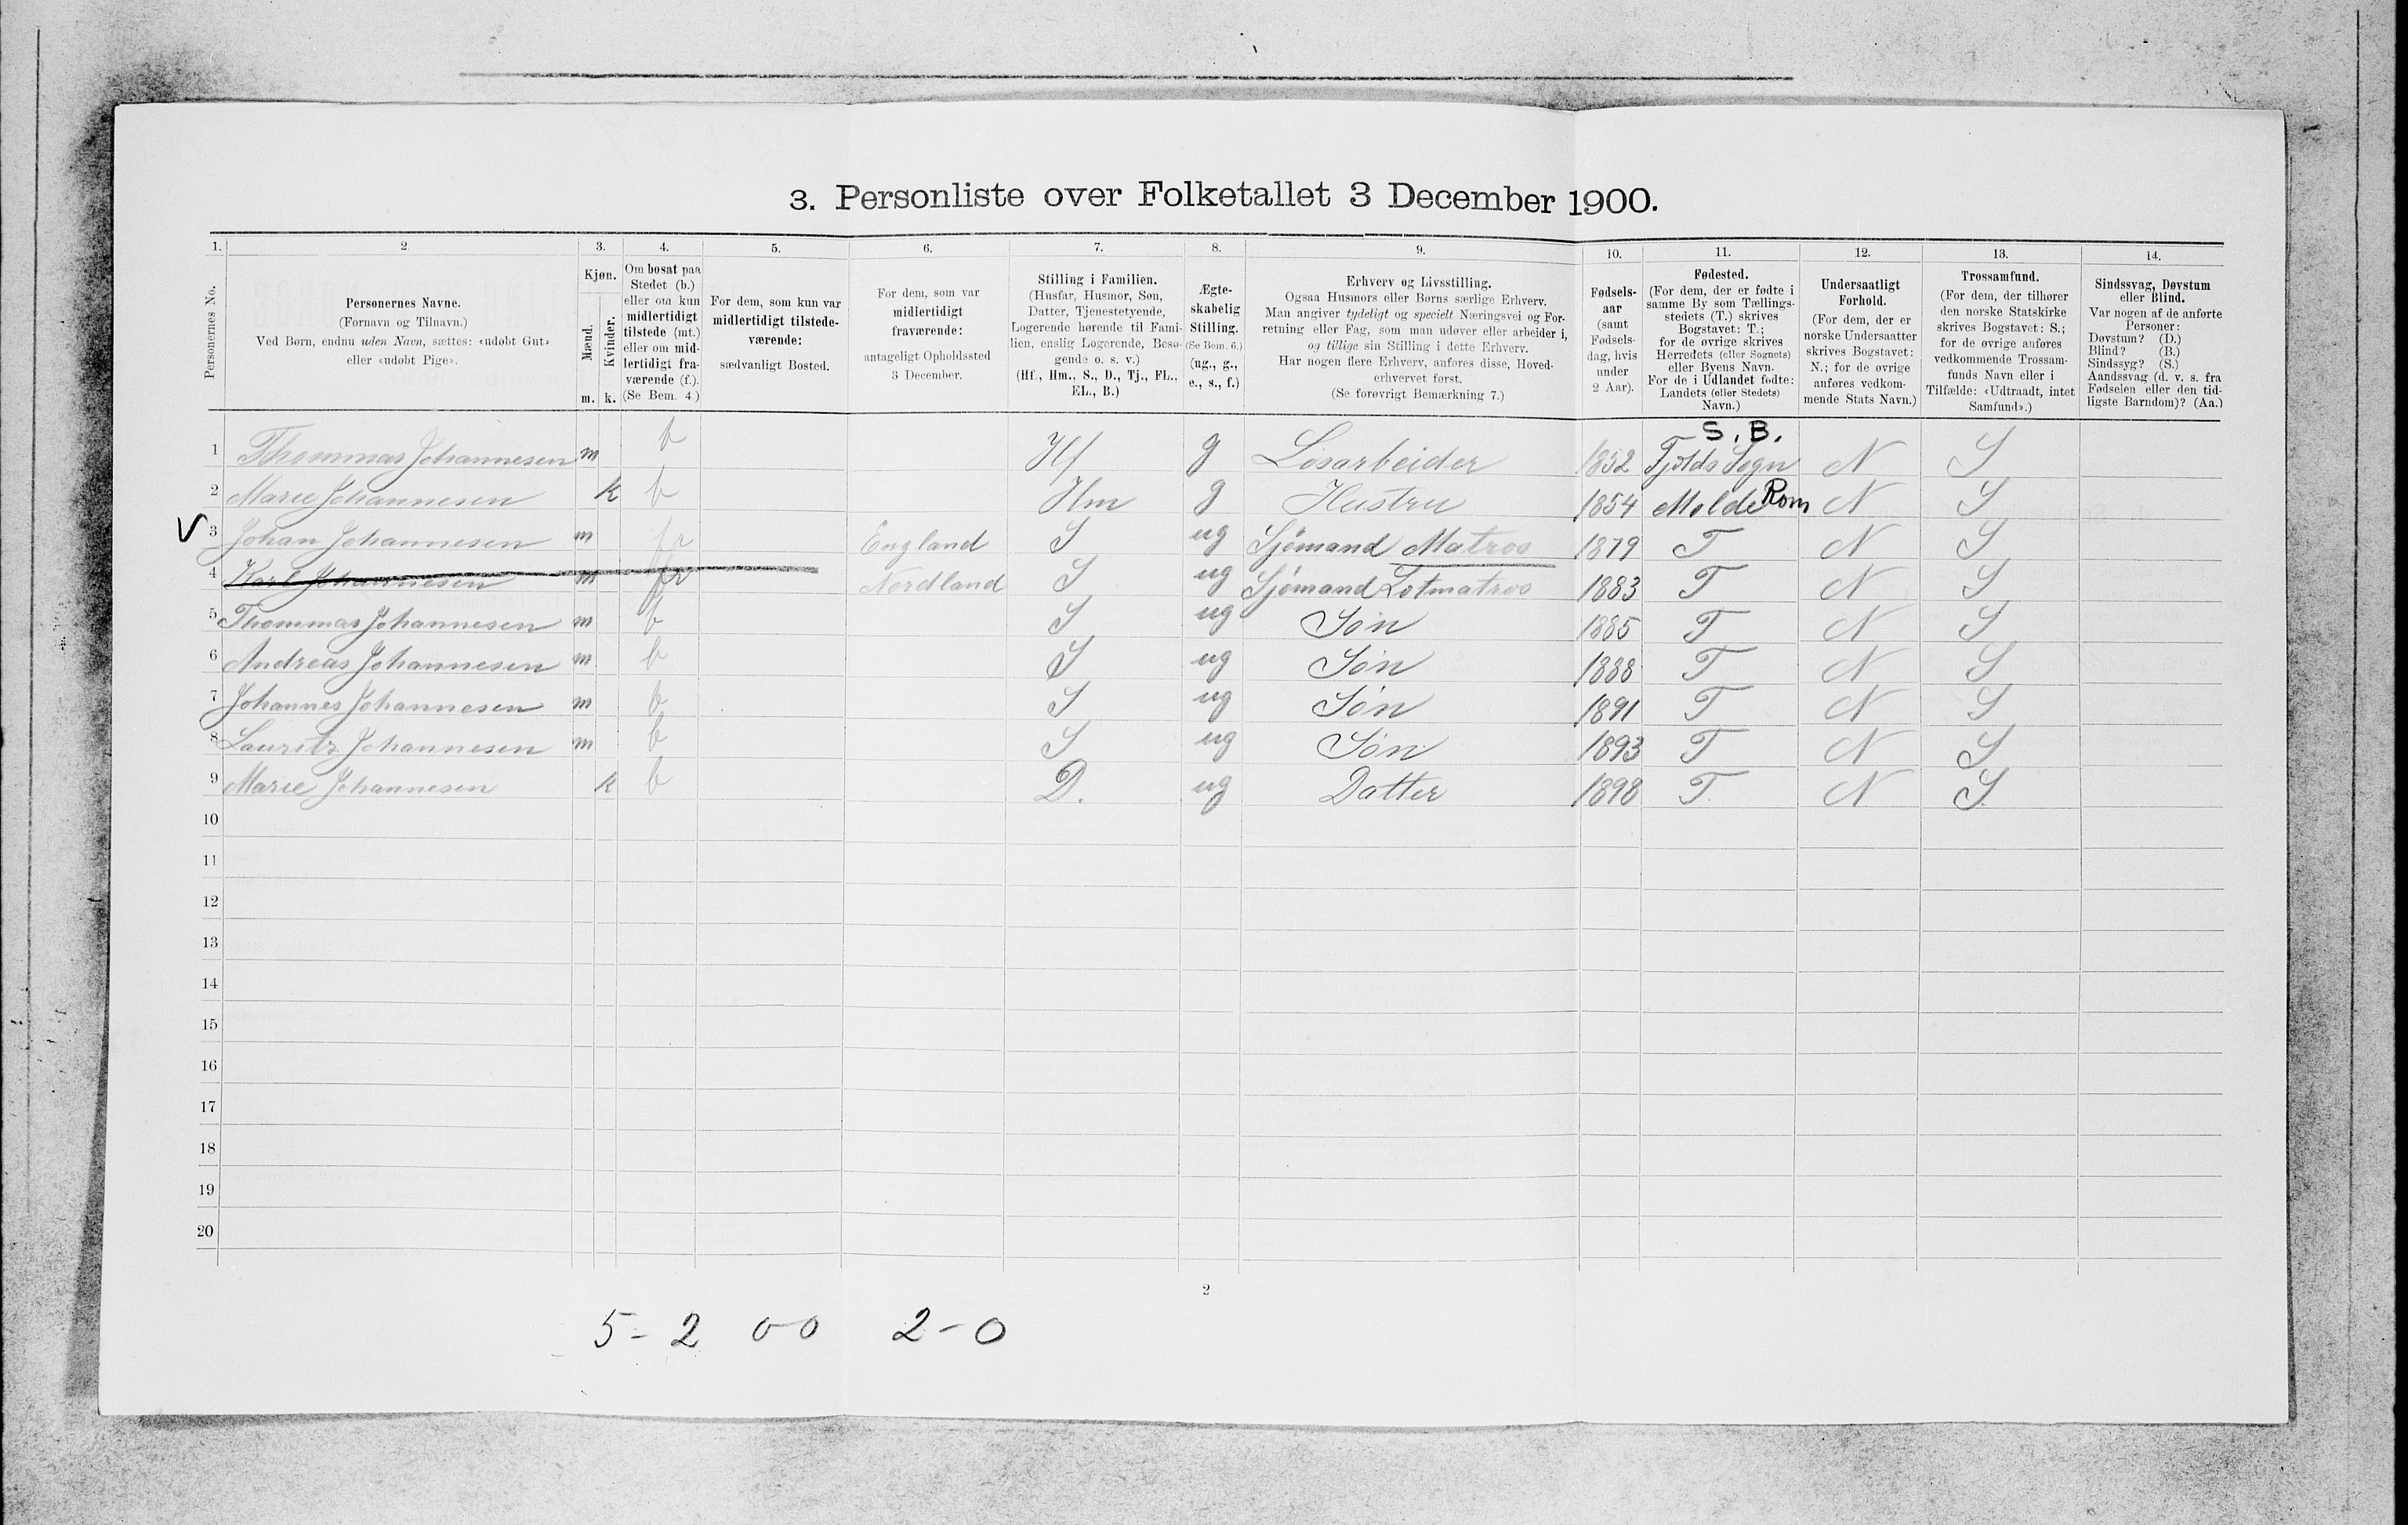 3. Personliste over Folketallet 3 December 1900.
1. 2 3. 4. 5. 6. 7. 8. 9. 10. 11. 12. 13. 14.
Personernes No.
Personernes Navne.
(Fornavn og Tilnavn.)
Ved Børn, endnu uden Navn, sættes: «udøbt Gut»
eller «udøbt Pige».
Kjøn.
Mænd.
Kvinder.
m. k.
Om bosat paa
Stedet (b.)
eller om kun
midlertidigt
tilstede (mt.)
eller om mid-
lertidigt fra-
værende (f.).
(Se Bem. 4.)
For dem, som kun var
midlertidigt tilstede-
værende:
sædvanligt Bosted.
For dem, som var
midlertidigt
fraværende:
antageligt Opholdssted
3 December.
Stilling i Familien.
(Husfar, Husmor, Søn,
Datter, Tjenestetyende,
Logerende hørende til Fami-
lien, enslig Logerende, Besø-
gende o. s. v.)
(Hf., Hm., S., D., Tj., FL.,
EL., B.)
Ægte-
skabelig
Stilling.
(Se Bem. 6.)
(ug., g.,
e., s., f.)
Erhverv og Livsstilling.
Ogsaa Husmors eller Børns særlige Erhverv.
Man angiver tydeligt og specielt Næringsvei og For-
retning eller Fag, som man udøver eller arbeider i,
og tillige sin Stilling i dette Erhverv.
Har nogen flere Erhverv, anføres disse, Hoved-
erhvervet først.
(Se forøvrigt Bemærkning 7.)
Fødsels-
aar
(samt
Fødsels-
dag, hvis
under
2 Aar).
Fødested.
(For dem, der er fødte i
samme By som Tællings-
stedets (T.) skrives
Bogstavet: T.;
for de øvrige skrives
Herredets (eller Sognets)
eller Byens Navn.
For de i Udlandet fødte:
Landets (eller Stedets)
Navn.)
Undersaatligt
Forhold.
(For dem, der er
norske Undersaatter
skrives Bogstavet:
N.; for de øvrige
anføres vedkom-
mende Stats Navn.)
Trossamfund.
(For dem, der tilhører
den norske Statskirke
skrives Bogstavet: S.;
for de øvrige anføres
vedkommende Trossam-
funds Navn eller i
Tilfælde: «Udtraadt, intet
Samfund».)
Sindssvag, Døvstum
eller Blind.
Var nogen af de anførte
Personer:
Døvstum? (D.)
Blind? (B.)
Sindssyg? (S.)
Aandssvag (d. v. s. fra
Fødselen eller den tid-
ligste Barndom)? (Aa.)
S. B.
1 Thommas Johannesen m b Hf g Løsarbeider 1852 Sogn N S
2 Marie Johannesen k b Hm g Hustru 1854 Molde Rom N S
V 3 Johan Johannesen m fr England S ug Sjömand Matros 1879 T N S
4 Karl Johannesen m fr Nordland S ug Sjömand Lotmatros 1883 T N S
5 Thommas Johannesen m b S ug Søn 1885 T N S
6 Andreas Johannesen m b S ug Søn 1888 T N S
7 Johannes Johannesen m b S ug Søn 1891 T N S
8 Lauritz Johannesen m b S ug Søn 1893 T N S
9 Marie Johannesen k b D. ug Datter 1898 T. N S.
10
11
12
13
14
15
16
17
18
19
20
2
5 - 2 0-0 2-0